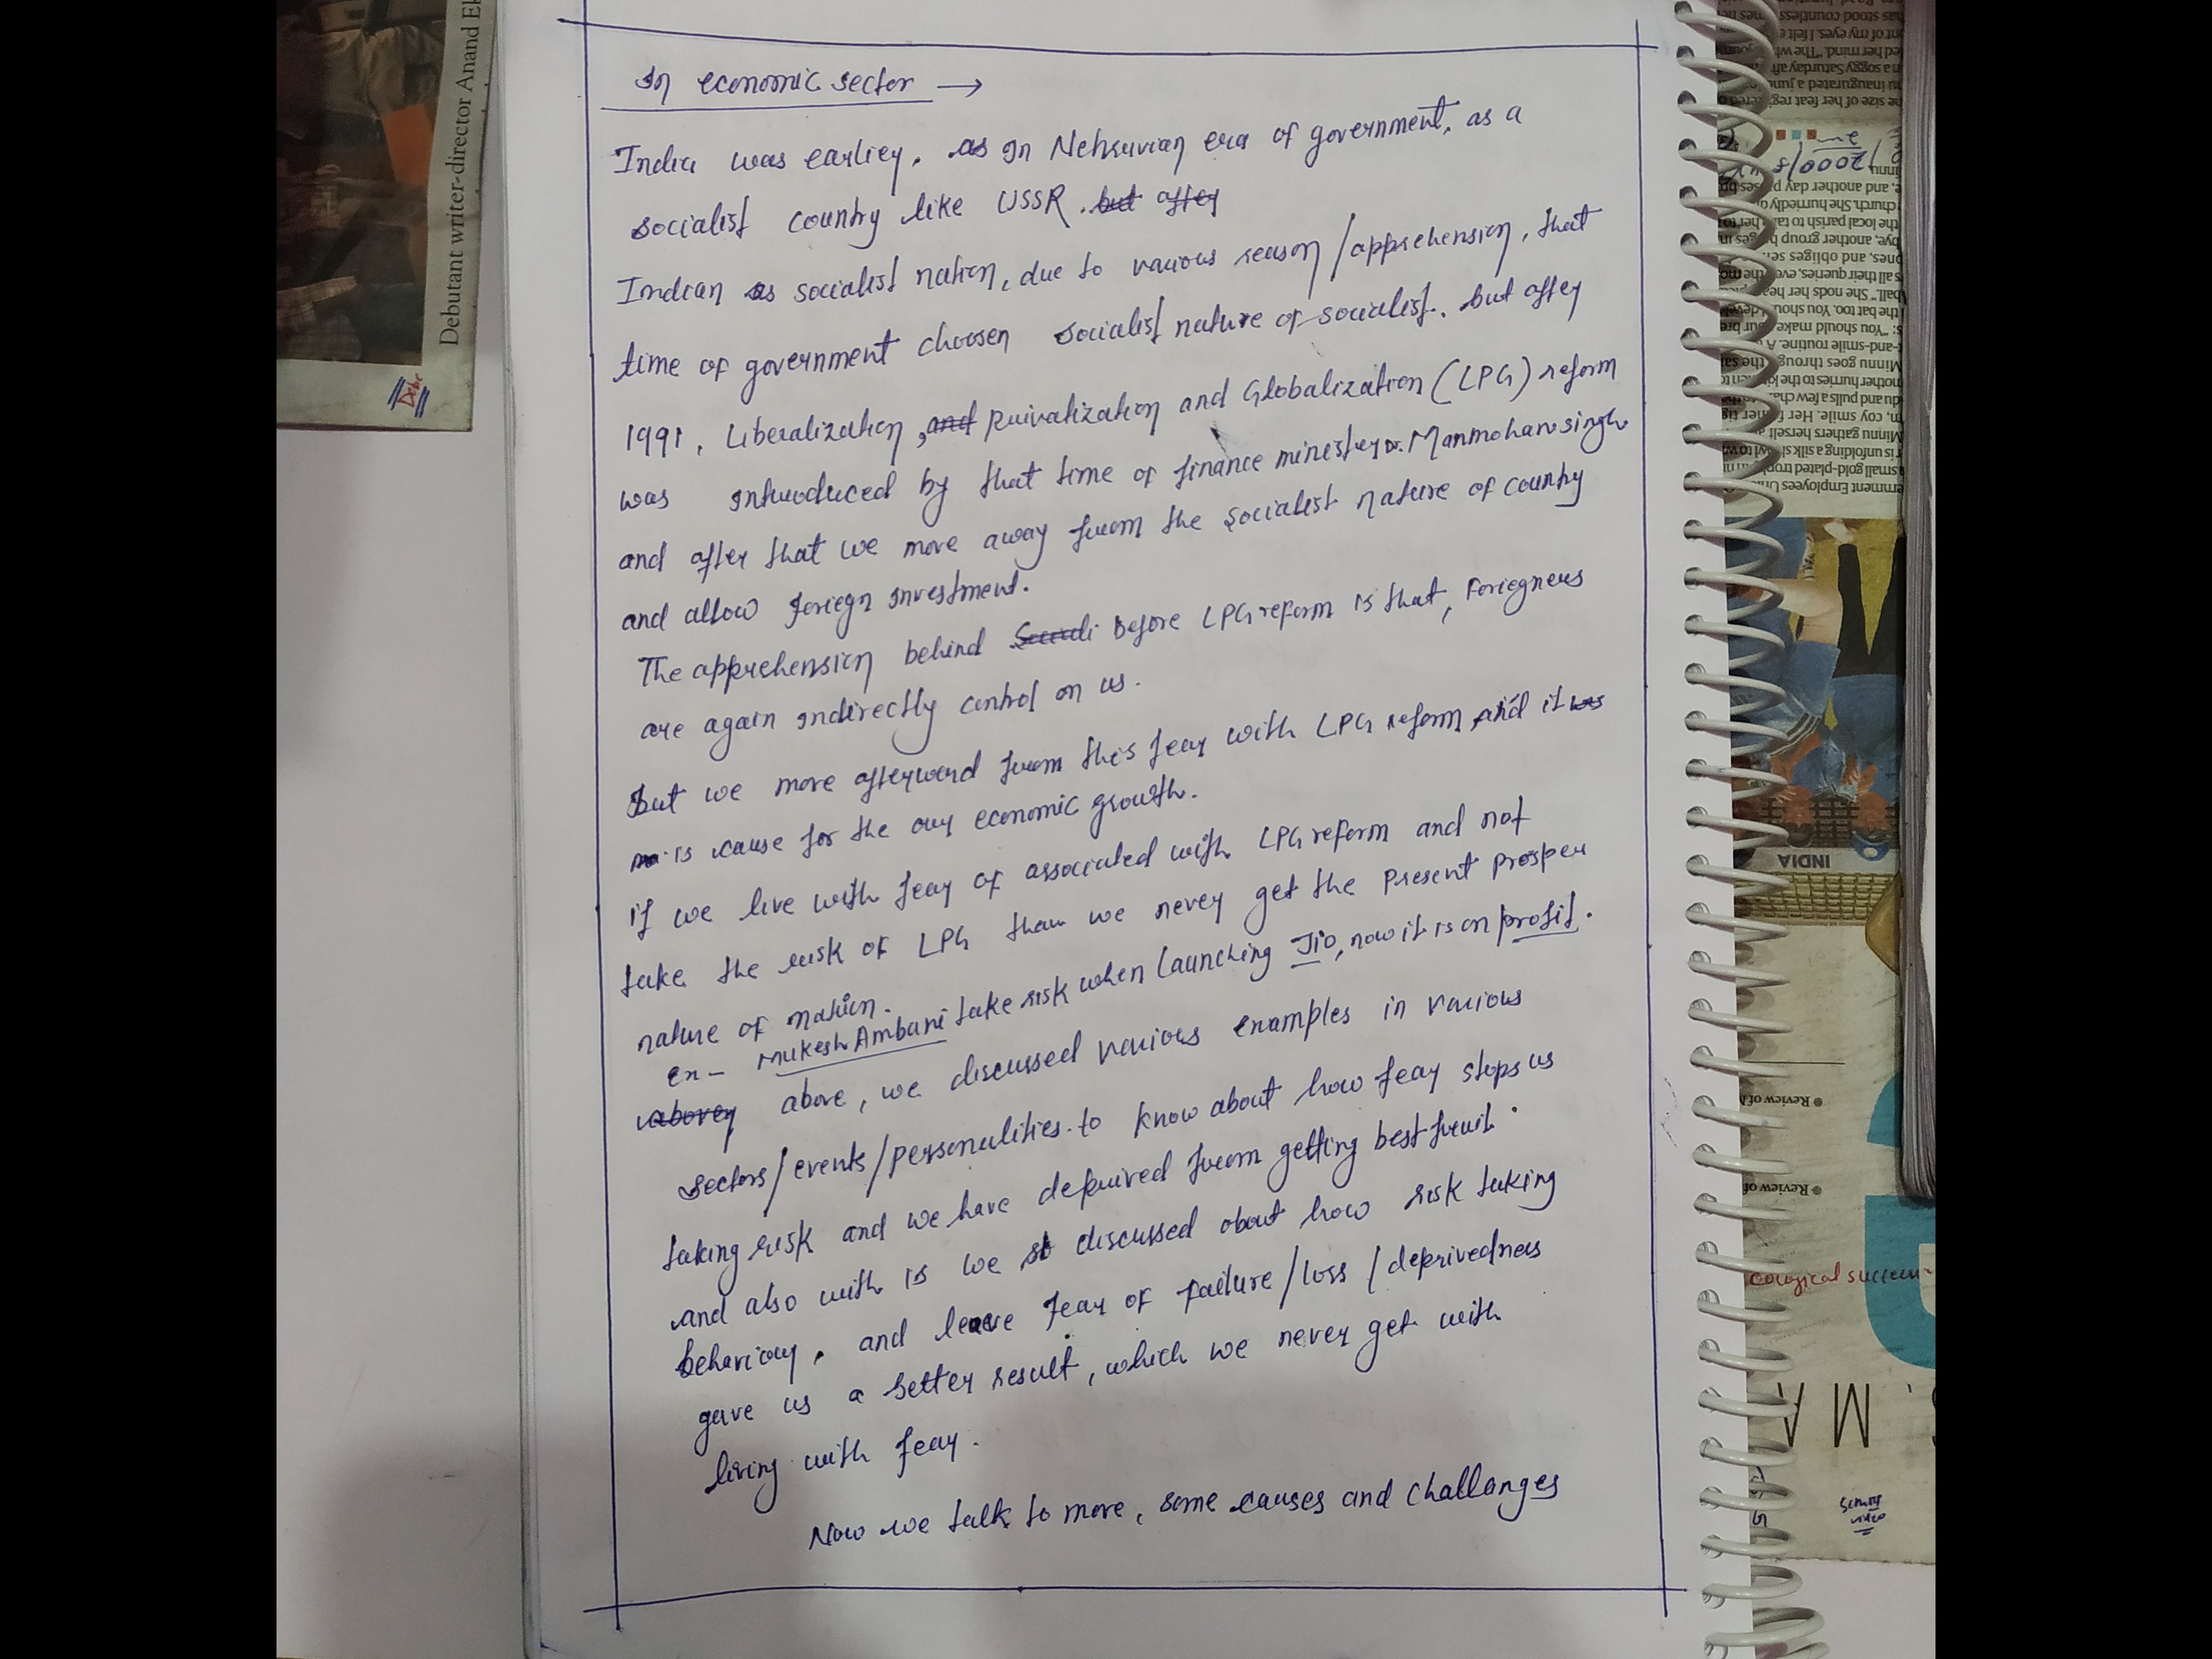 In economic sector →
India was earliey, as In Nehruvian era of government, as a
socialist country like USSR. but after
Indian as socialist nation, due to various reason/apprehension, that
time of government choosen socialist nature of socialist. but after
1991, Liberalization, and Privatization and Globalization (LPG) reform
was introduced by that time of finance minister Dr. Manmohan singh
and after that we move away from the socialist nature of country
and allow foriegn investment.
The apprehension behind before LPG reform is that, Foriegners
are again indirectly control on us.
But we move afterward from this fear with LPG reform and it was
is cause for the our economic growth.
if we live with fear of associated with LPG reform and not
take the risk of LPG than we never get the present prosper
nature of nation.
ex- Mukesh Ambani take risk when launching Jio, now it is on profit.
above, we discussed various examples in various
sectors/events/personalities to know about how fear stops us
taking risk and we have deprived from getting best fruit.
and also with is we discussed about how risk taking
behaviour, and leave fear of failure/loss/deprivedness
gave us a better result, which we never get with
living with fear.
Now we talk to more, some causes and challanges
Debutant writer-director Anand
INDIA
Review of
Review of